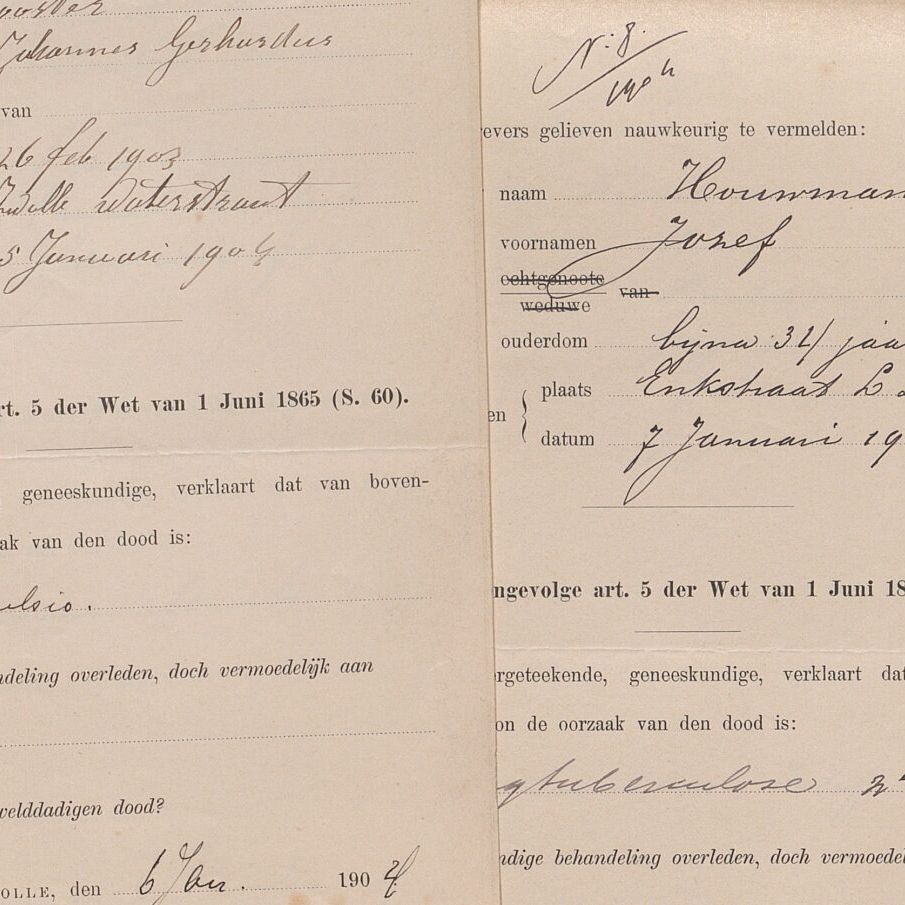 Johannes Gerhardus
van
26 feb 1903
Zwolle Waterstraat
5 Januari 1904
rt. 5 der Wet van 1 Juni 1865 (S. 60).
geneeskundige, verklaart dat van boven-
ak van den dood is:
ulsio.
ndeling overleden, doch vermoedelijk aan
welddadigen dood?
OLLE, den 6 Jan. 1904
N: 8.
1904
evers gelieven nauwkeurig te vermelden:
naam Houwman
voornamen Jozef
echtgenoote
weduwe van
ouderdom bijna 32/ jaa
en
plaats Enkstraat L
datum 7 Januari 19
ngevolge art. 5 der Wet van 1 Juni 18
rgeteekende, geneeskundige, verklaart dat
on de oorzaak van den dood is:
gtuberculose
ndige behandeling overleden, doch vermoedel